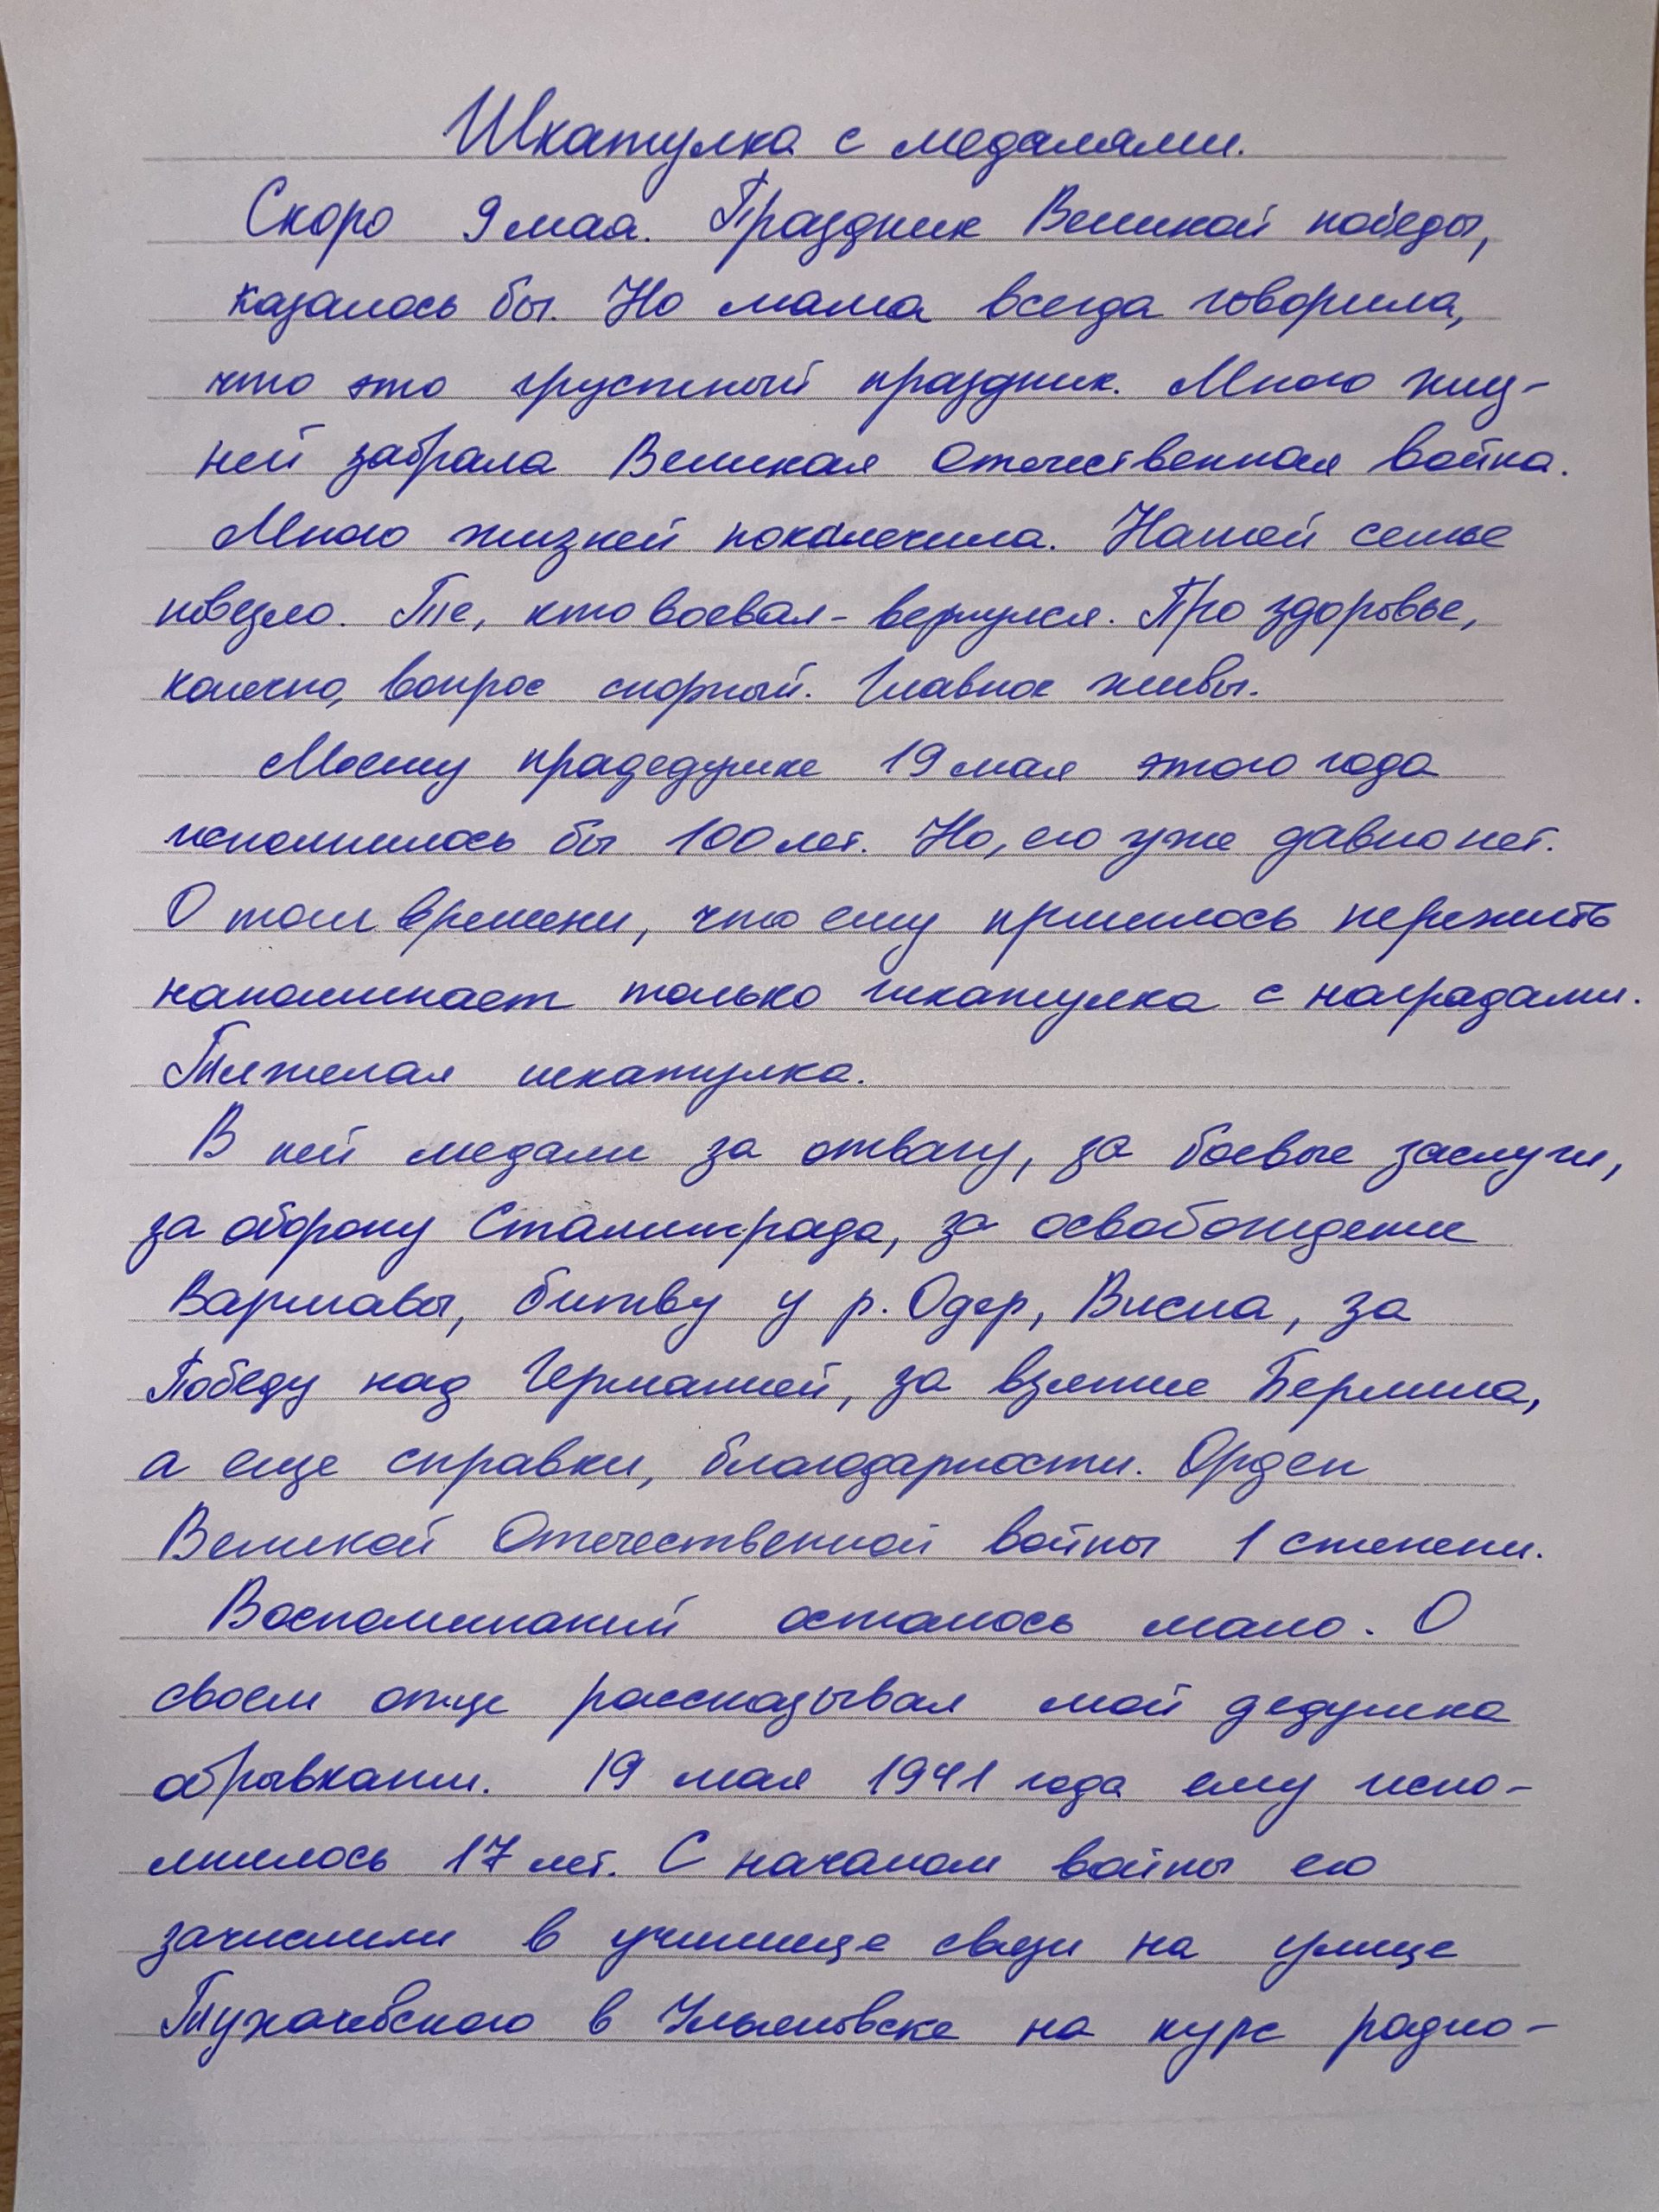 Шкатулка с медалями.
Скоро 9 мая. Праздник Великой победы,
казалось бы. Но мама всегда говорила,
что это грустный праздник. Много жиз-
ней забрала Великая Отечественная война.
Много жизней покалечила. Нашей семье
повезло. Те, кто воевал - вернулся. Про здоровье,
конечно, вопрос спорный. Главное живы.
Моему прадедушке 19 мая этого года
исполнилось бы 100 лет. Но, его уже давно нет.
О том времени, что ему пришлось пережить
напоминает только шкатулка с наградами.
Тяжелая шкатулка.
В ней медали за отвагу, за боевые заслуги,
за оборону Сталинграда, за освобождение
Варшавы, битву у р. Одер, Висла, за
Победу над Германией, за взятие Берлина,
а еще справки, благодарности. Орден
Великой Отечественной войны 1 степени.
Воспоминаний осталось мало. О
своем отце рассказывал мой дедушка
обрывками. 19 мая 1941 года ему испо-
лнилось 17 лет. С началом войны его
зачислили в училище связи на улице
Тухачевского в Ульяновске на курс радио-